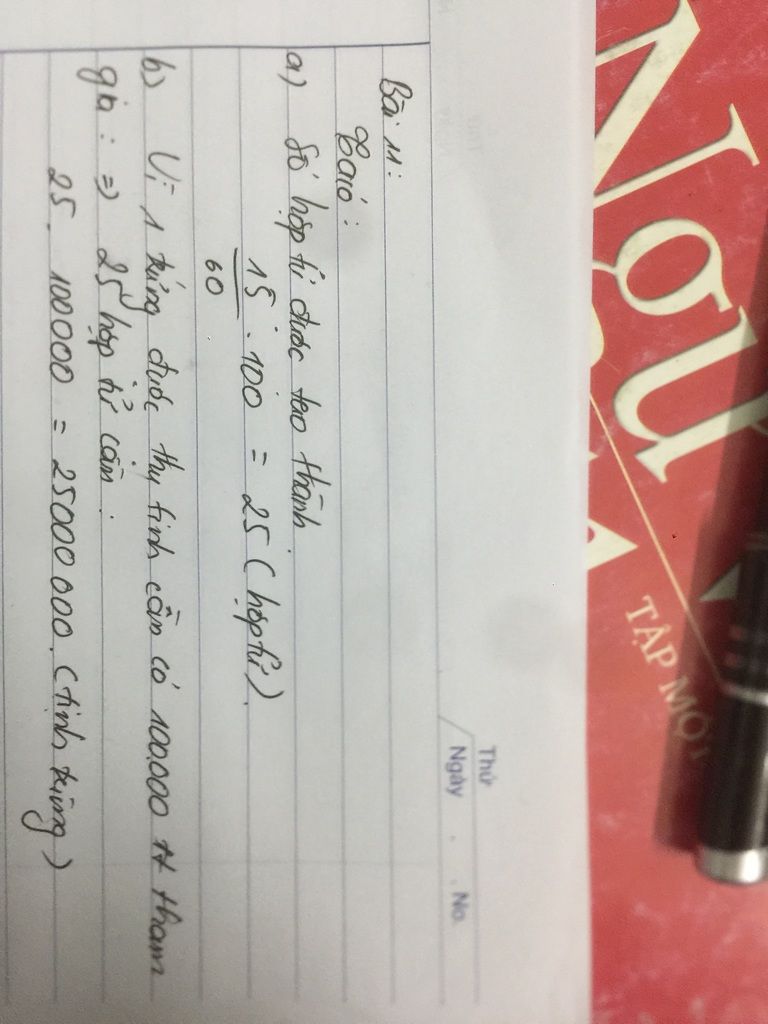 Thứ
Ngày . . No.
Bài 11:
Giải:
a) Số hợp tử được tạo thành
15 . 100 = 25 (hợp tử).
60
b) Vì 1 trứng được thụ tinh cần có 100.000 tt tham
gia : => 25 hợp tử cần :
25. 100000 = 25000000. (tinh trùng)
Ngữ
TẬP MỘT